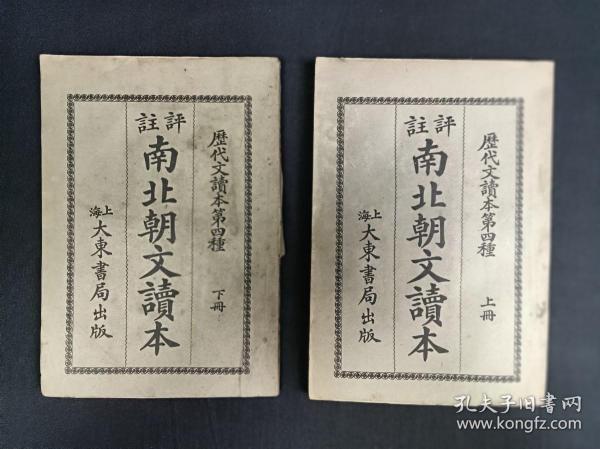 歷代文讀本第四種
下冊
評註
南北朝文讀本
上海
大東書局出版
歷代文讀本第四種
上冊
評註
南北朝文讀本
上海
大東書局出版
孔夫子旧書网
www.kongfz.com